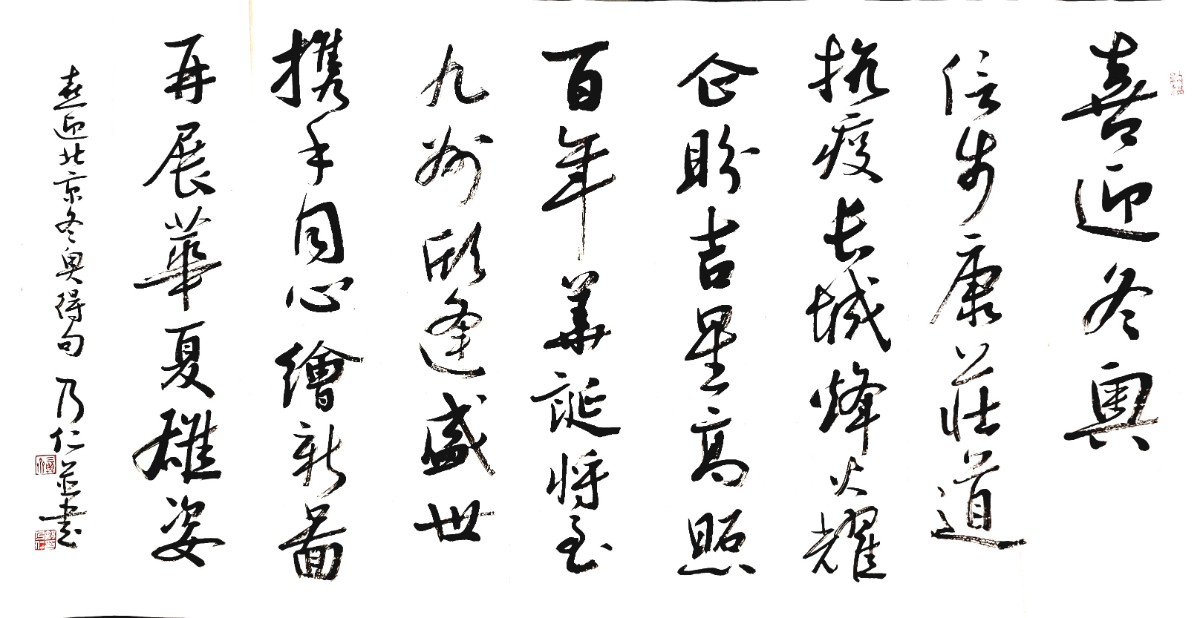 喜迎冬奥
信步康莊道
抗疫长城烽火耀
企盼吉星高照
百年華誕将至
九州欣逢盛世
携手同心繪新图
再展華夏雄姿
喜迎北京冬奥得句 乃仁並书